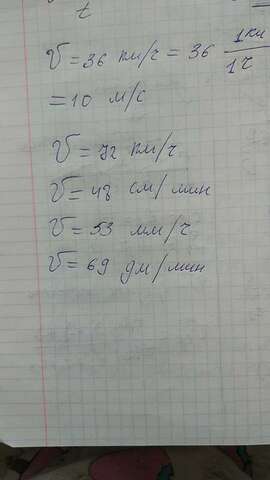 t
V = 36 км/ч = 36 1км/1ч
= 10 м/с
V = 72 км/ч
V = 48 см/мин
V = 53 мм/ч
V = 69 дм/мин